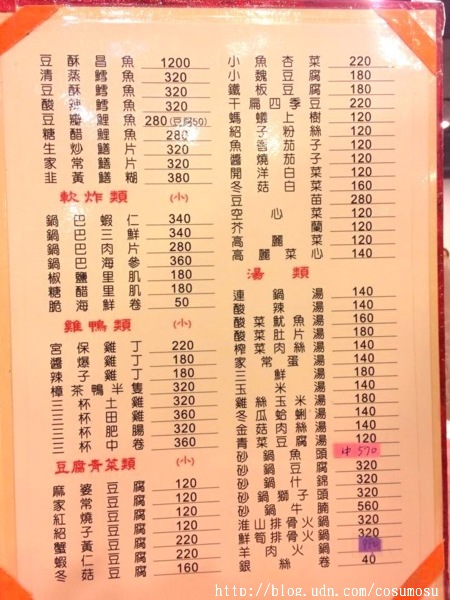 豆酥昌魚 1200
清蒸鱈魚 320
豆酥鱈魚 320
酸辣鱈魚 320
豆瓣鯉魚 280(豆腐50)
糖醋鯉魚 280
生炒鱔片 320
家常鱔片 320
韭黃鱔糊 380
軟炸類 (小)
鍋巴蝦仁 340
鍋巴三鮮 340
鍋巴肉片 280
鍋巴海參 360
椒鹽里肌 180
糖醋里肌 180
脆海鮮卷 50
雞鴨類 (小)
宮保雞丁 220
醬爆雞丁 180
辣子雞丁 180
樟茶鴨半隻 320
三杯土雞 320
三杯田雞 360
三杯肥腸 320
三杯中卷 360
豆腐青菜類 (小)
麻婆豆腐 120
家常豆腐 120
紅燒豆腐 120
紹子豆腐 120
蟹黃豆腐 220
蝦仁豆腐 220
冬菇豆腐 160
小魚杏菜 220
小魏豆腐 180
鐵板豆腐 180
干扁四季豆 220
螞蟻上樹 140
紹子粉絲 140
魚香茄子 140
醬燒茄子 140
開洋白菜 140
冬菇白菜 160
豆苗 280
空心菜 140
芥蘭 140
高麗菜 120
高麗菜心 140
湯類
連鍋湯 140
酸辣湯 140
酸菜魷魚湯 160
酸菜肚片湯 180
榨菜肉絲湯 140
家常蛋湯 140
三鮮湯 180
玉米湯 140
雞絲玉米湯 140
冬瓜蛤蜊湯 180
金菇肉絲湯 140
青菜豆腐湯 120
砂鍋魚頭 中570
砂鍋豆腐 320
砂鍋什錦 320
砂鍋獅子頭 320
砂鍋牛腩 560
淮山排骨火鍋 320
鮮筍排骨火鍋 320
羊肉火鍋
銀絲卷 40
http://blog.udn.com/cosumosu